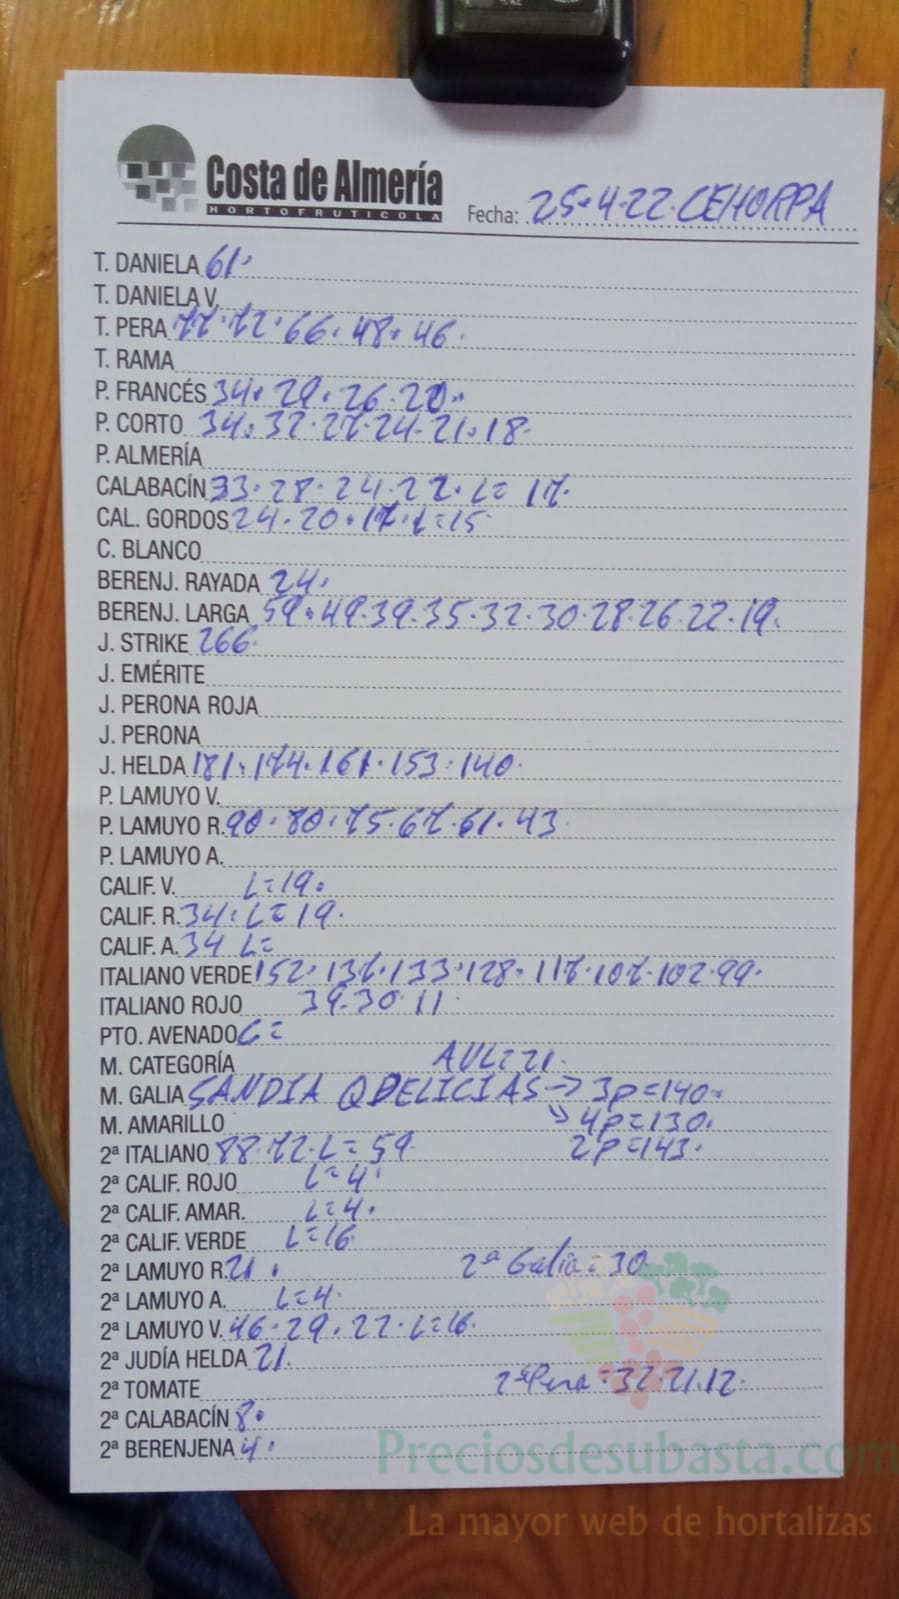 Costa de Almería
HORTOFRUTICOLA
Fecha: 25·4·22·CEHORPA
T. DANIELA 61·
T. DANIELA V.
T. PERA 77·72·66·48·46·
T. RAMA
P. FRANCÉS 34·29·26·20·
P. CORTO 34·32·27·24·21·18·
P. ALMERÍA
CALABACÍN 33·28·24·22·L= 17·
CAL. GORDOS 24·20·17·L=15·
C. BLANCO
BERENJ. RAYADA 24·
BERENJ. LARGA 59·49·39·35·32·30·28·26·22·19·
J. STRIKE 266·
J. EMÉRITE
J. PERONA ROJA
J. PERONA
J. HELDA 181·174·161·153·140·
P. LAMUYO V.
P. LAMUYO R. 90·80·75·67·61·43·
P. LAMUYO A.
CALIF. V. L=19·
CALIF. R. 34·L=19·
CALIF. A. 34 L=
ITALIANO VERDE 152·137·133·128·117·107·102·99·
ITALIANO ROJO 39·30·11·
PTO. AVENADO L=
M. CATEGORÍA AVL=21·
M. GALIA SANDIA QDELICIAS → 3p=140·
M. AMARILLO ↘ 4p=130·
2ª ITALIANO 88·72·L=59 2p=143·
2ª CALIF. ROJO L=4·
2ª CALIF. AMAR. L=4·
2ª CALIF. VERDE L=16
2ª LAMUYO R. 21· 2ª Galia=30
2ª LAMUYO A. L=4·
2ª LAMUYO V. 46·29·22·L=16·
2ª JUDÍA HELDA 21·
2ª TOMATE 2ª Pera=32·21·12·
2ª CALABACÍN 8·
2ª BERENJENA 4·
Preciosdesubasta.com
La mayor web de hortalizas